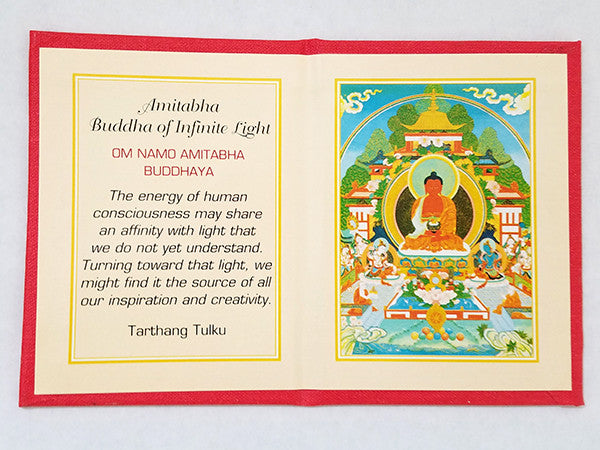 Amitabha
Buddha of Infinite Light
OM NAMO AMITABHA
BUDDHAYA
The energy of human
consciousness may share
an affinity with light that
we do not yet understand.
Turning toward that light, we
might find it the source of all
our inspiration and creativity.
Tarthang Tulku